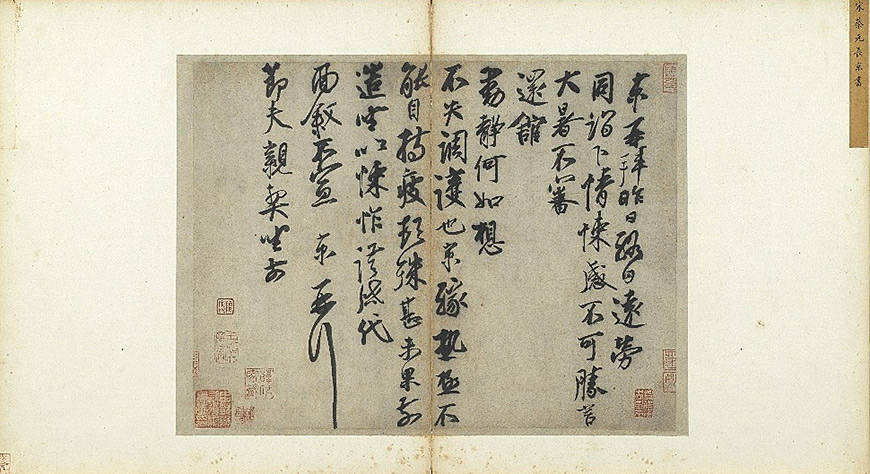 宋蔡元長京書
京再拜昨日終日遠勞
同詣下情悚感不可勝言
大暑不審
還館
動靜何如想
不失調護也京緣熱極不
能自持疲頓殊甚未果前
造坐以悚怍謹啟代
面敘不宣 京再拜
節夫親契坐前